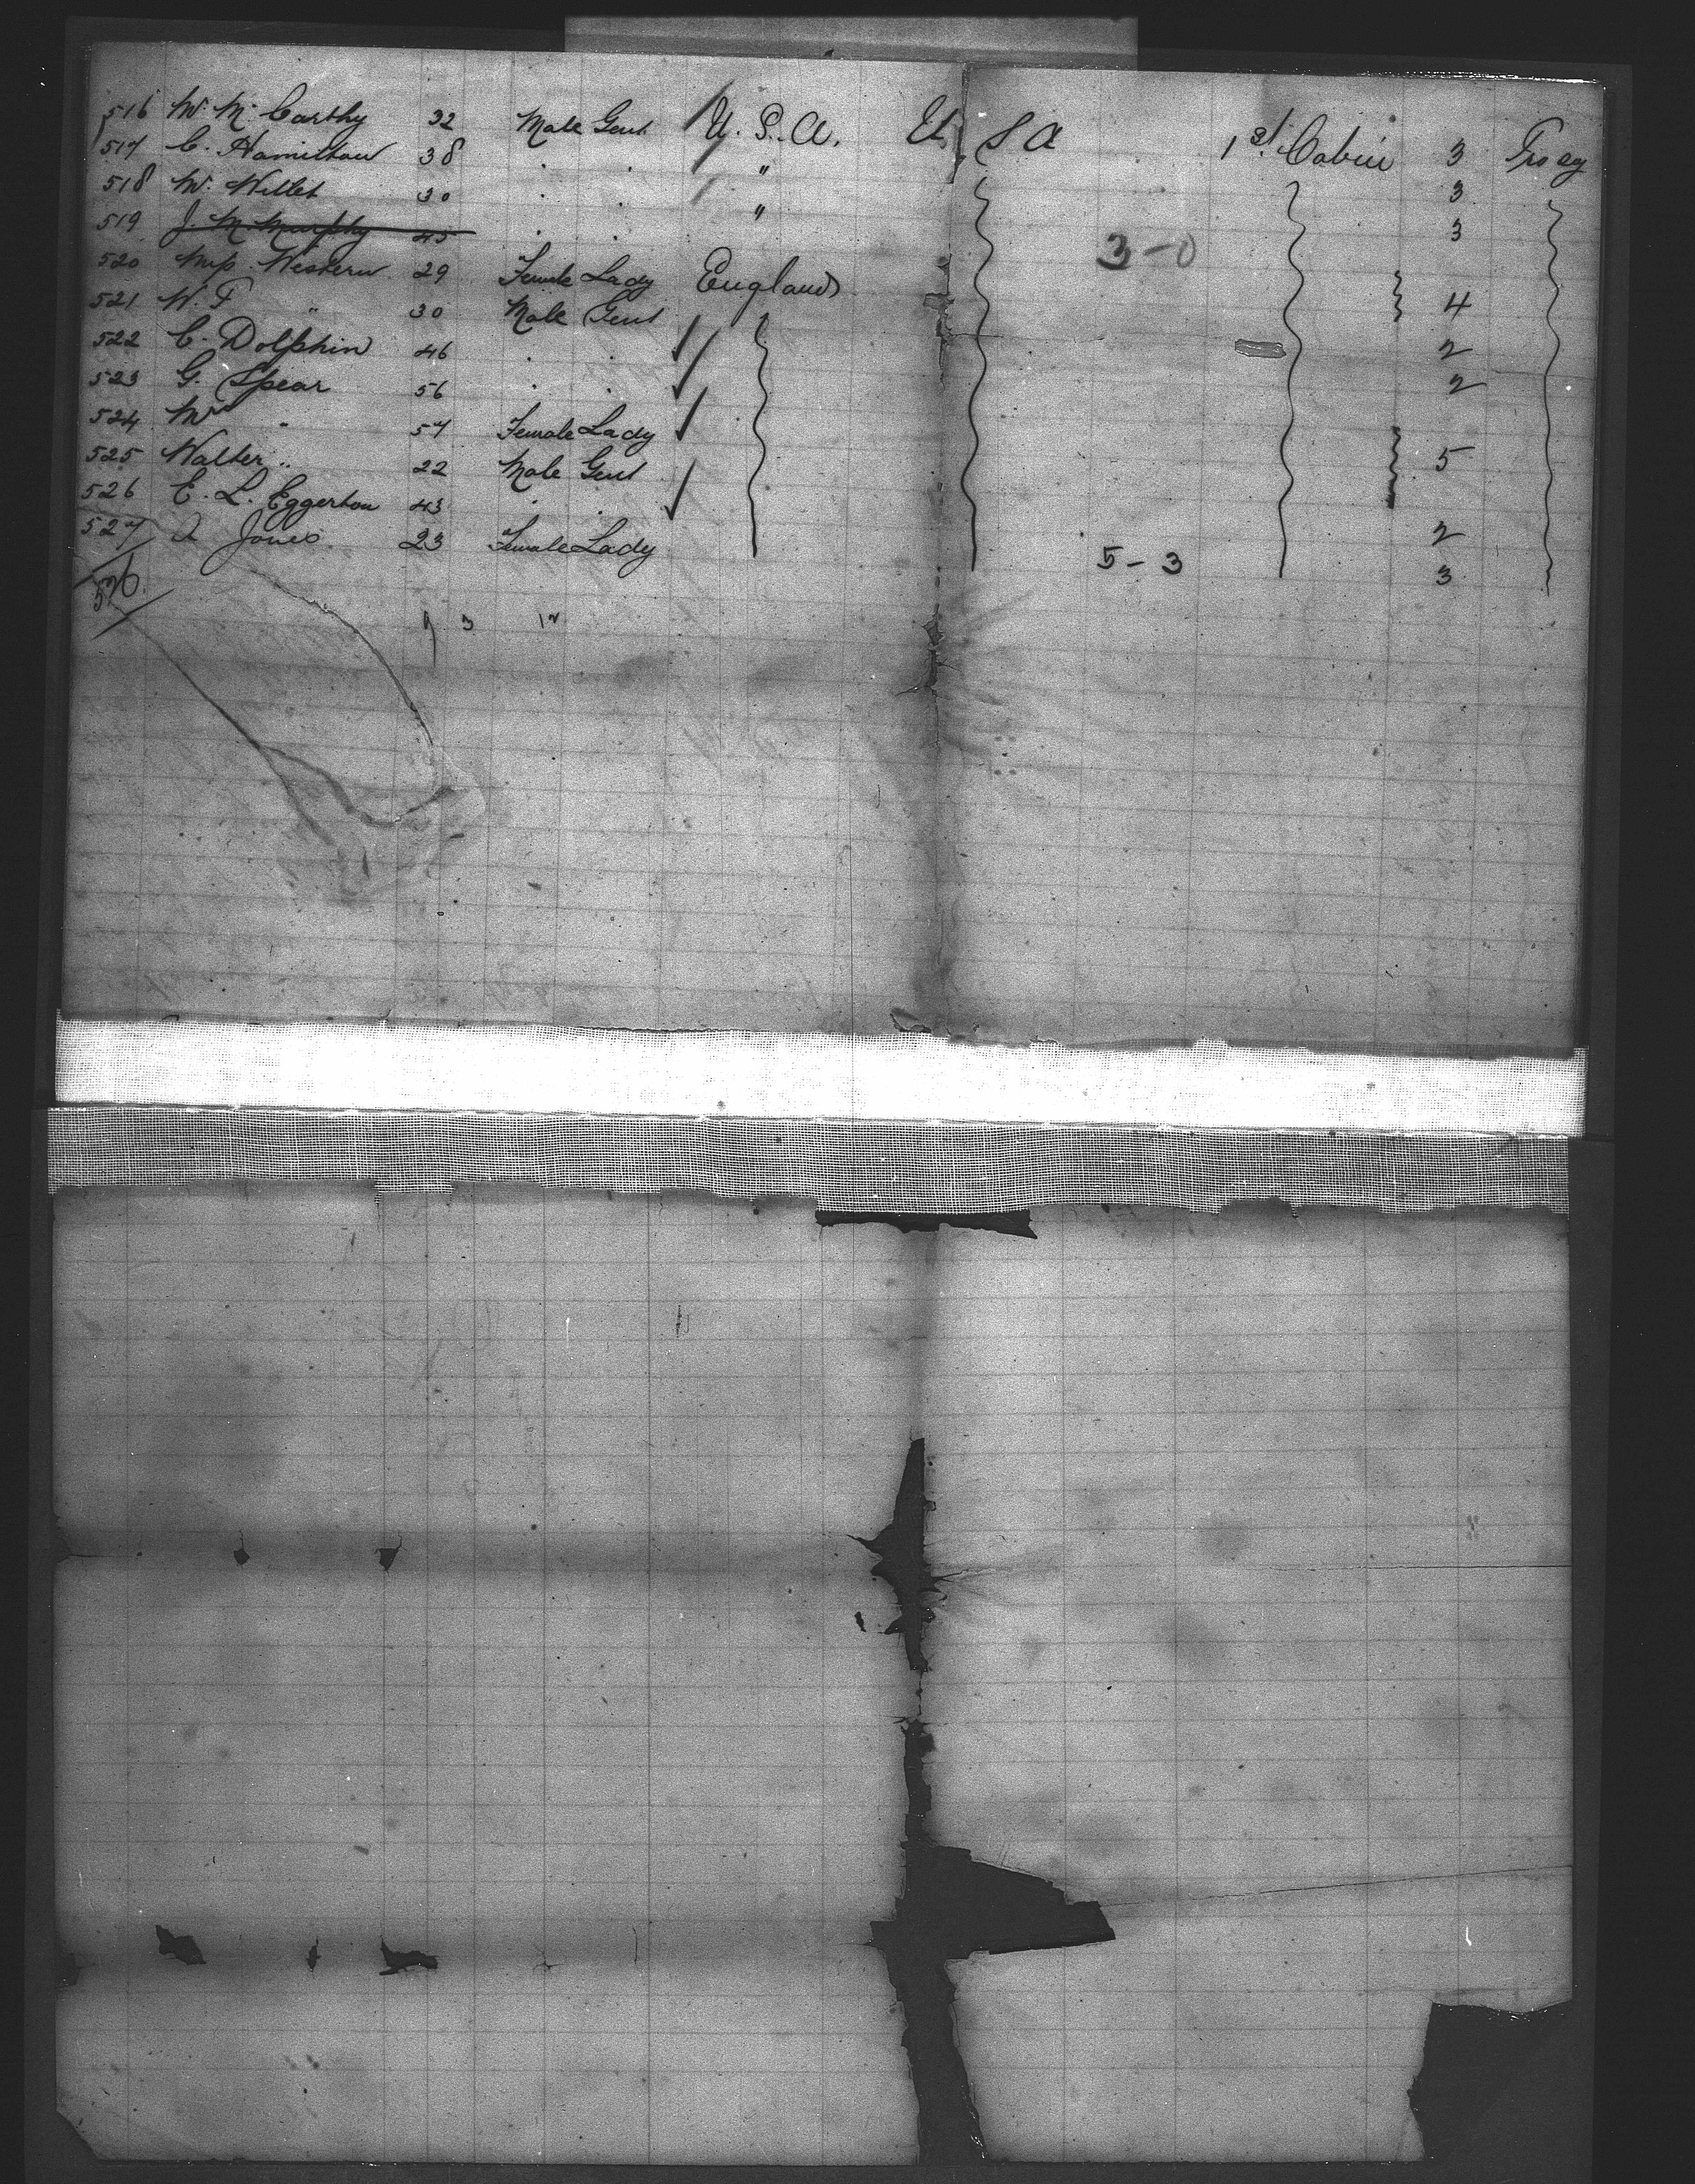 516 W. M. Carthy 32 Male Gent U. S. A. U S A 1st Cabin 3
517 C. Hamilton 38 . . "
518 W. Willet 30 . . " 3
519 J. M. Murphy 45 . . 3
3-0
520 Mrs Western 29 Female Lady England
521 W. F " 30 Male Gent 4
522 C. Dolphin 46 . . 2
523 G. Spear 56 . . 2
524 Mrs " 57 Female Lady
525 Walter " 22 Male Gent 5
526 E. L. Eggerton 43 . . 2
527 A Jones 23 Female Lady 5-3 3
526
9 3 12